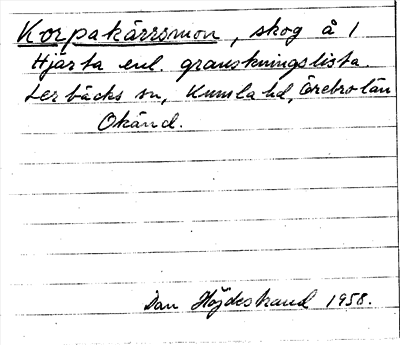 Korpakärrsmon, skog å 1
Hjärta enl. granskningslista.
Lerbäcks sn, Kumla hd, Örebro län
Okänd.
Dan Höjdestrand 1958.